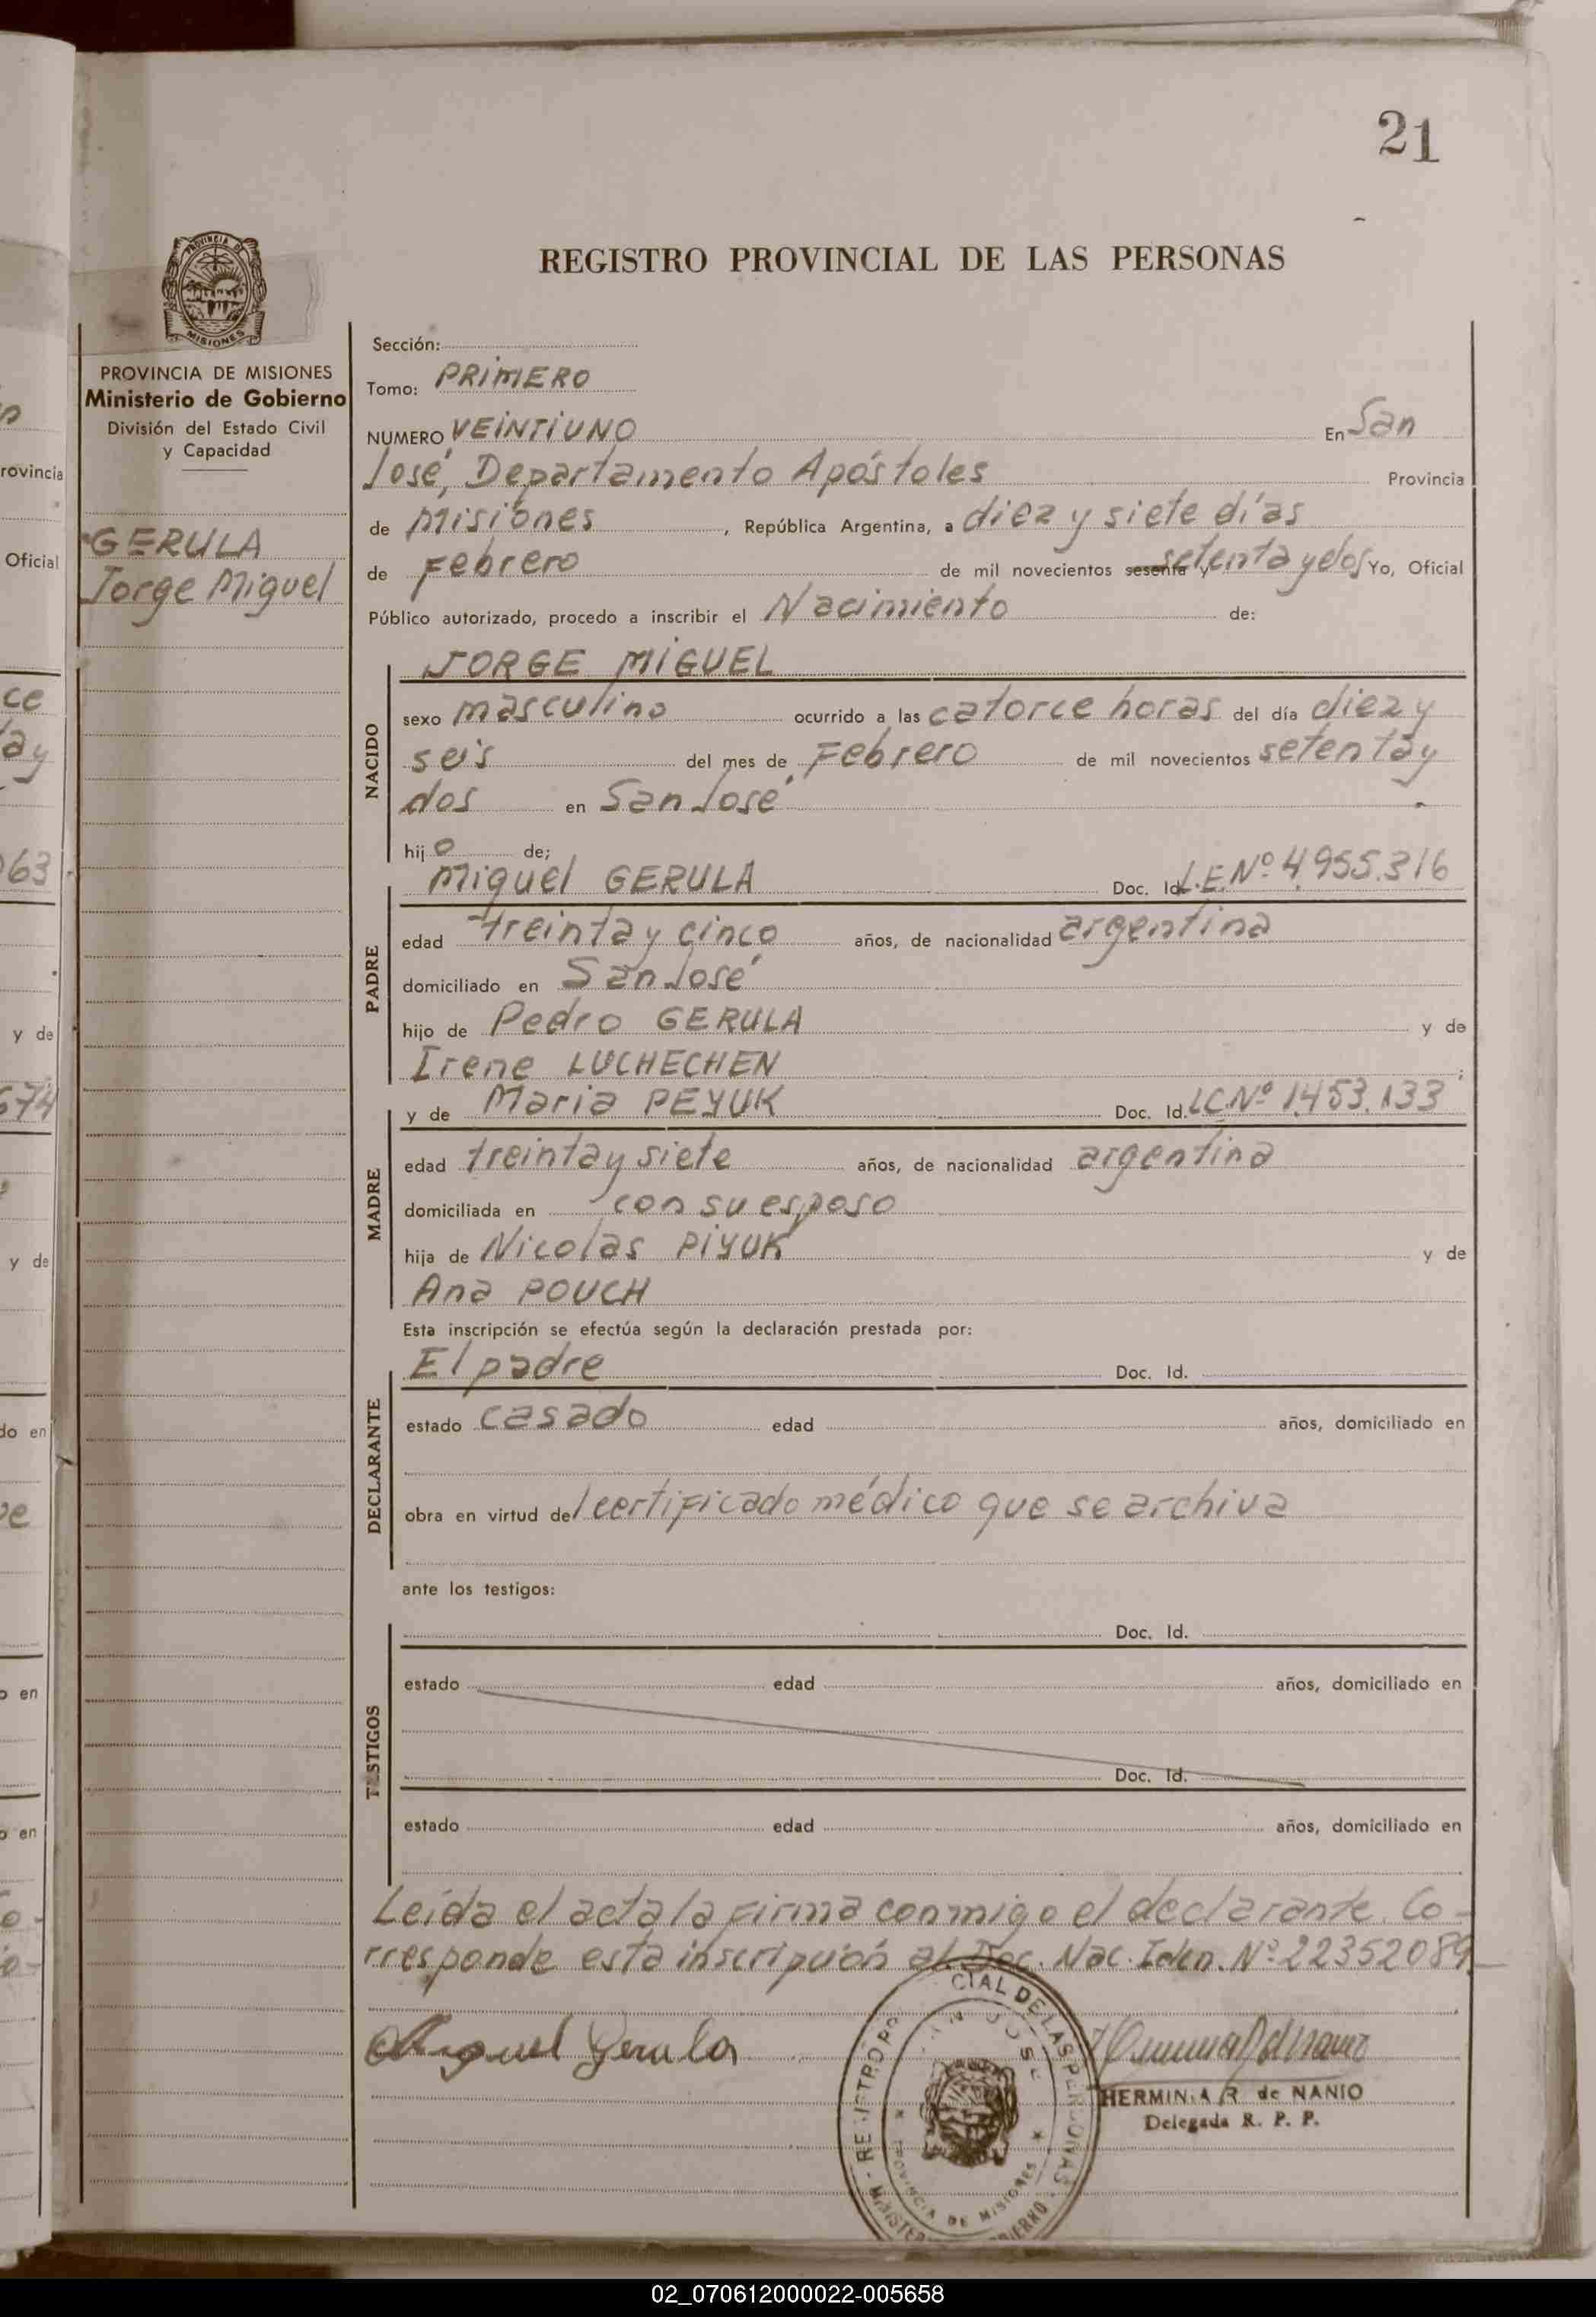 21
REGISTRO PROVINCIAL DE LAS PERSONAS
PROVINCIA DE MISIONES
Ministerio de Gobierno
División del Estado Civil
y Capacidad
GERULA
Jorge Miguel
Sección:
Tomo: PRIMERO
NUMERO VEINTIUNO En San
José, Departamento Apóstoles Provincia
de Misiones, República Argentina, a diez y siete días
de Febrero de mil novecientos sesenta y setenta y dos Yo, Oficial
Público autorizado, procedo a inscribir el Nacimiento de:
NACIDO
JORGE MIGUEL
sexo masculino ocurrido a las catorce horas del día diez y
seis del mes de Febrero de mil novecientos setenta y
dos en San José
hijo de;
PADRE
Miguel GERULA Doc. Id. L.E.Nº 4.955.316
edad treinta y cinco años, de nacionalidad argentina
domiciliado en San José
hijo de Pedro GERULA y de
Irene LUCHECHEN ;
MADRE
y de Maria PEYUK Doc. Id. LC.Nº 1.453.133
edad treinta y siete años, de nacionalidad argentina
domiciliada en con su esposo
hija de Nicolas PIYUK y de
Ana POUCH
Esta inscripción se efectúa según la declaración prestada por:
DECLARANTE
El padre Doc. Id.
estado casado edad años, domiciliado en
obra en virtud del certificado médico que se archiva
ante los testigos:
TESTIGOS
Doc. Id.
estado edad años, domiciliado en
Doc. Id.
estado edad años, domiciliado en
Leída el acta la firma conmigo el declarante. Co-
rresponde esta inscripción al Doc. Nac. Iden. Nº 22352089
Miguel Gerula
HERMINIA R. de NANIO
Delegada R. P. P.
02_070612000022-005658